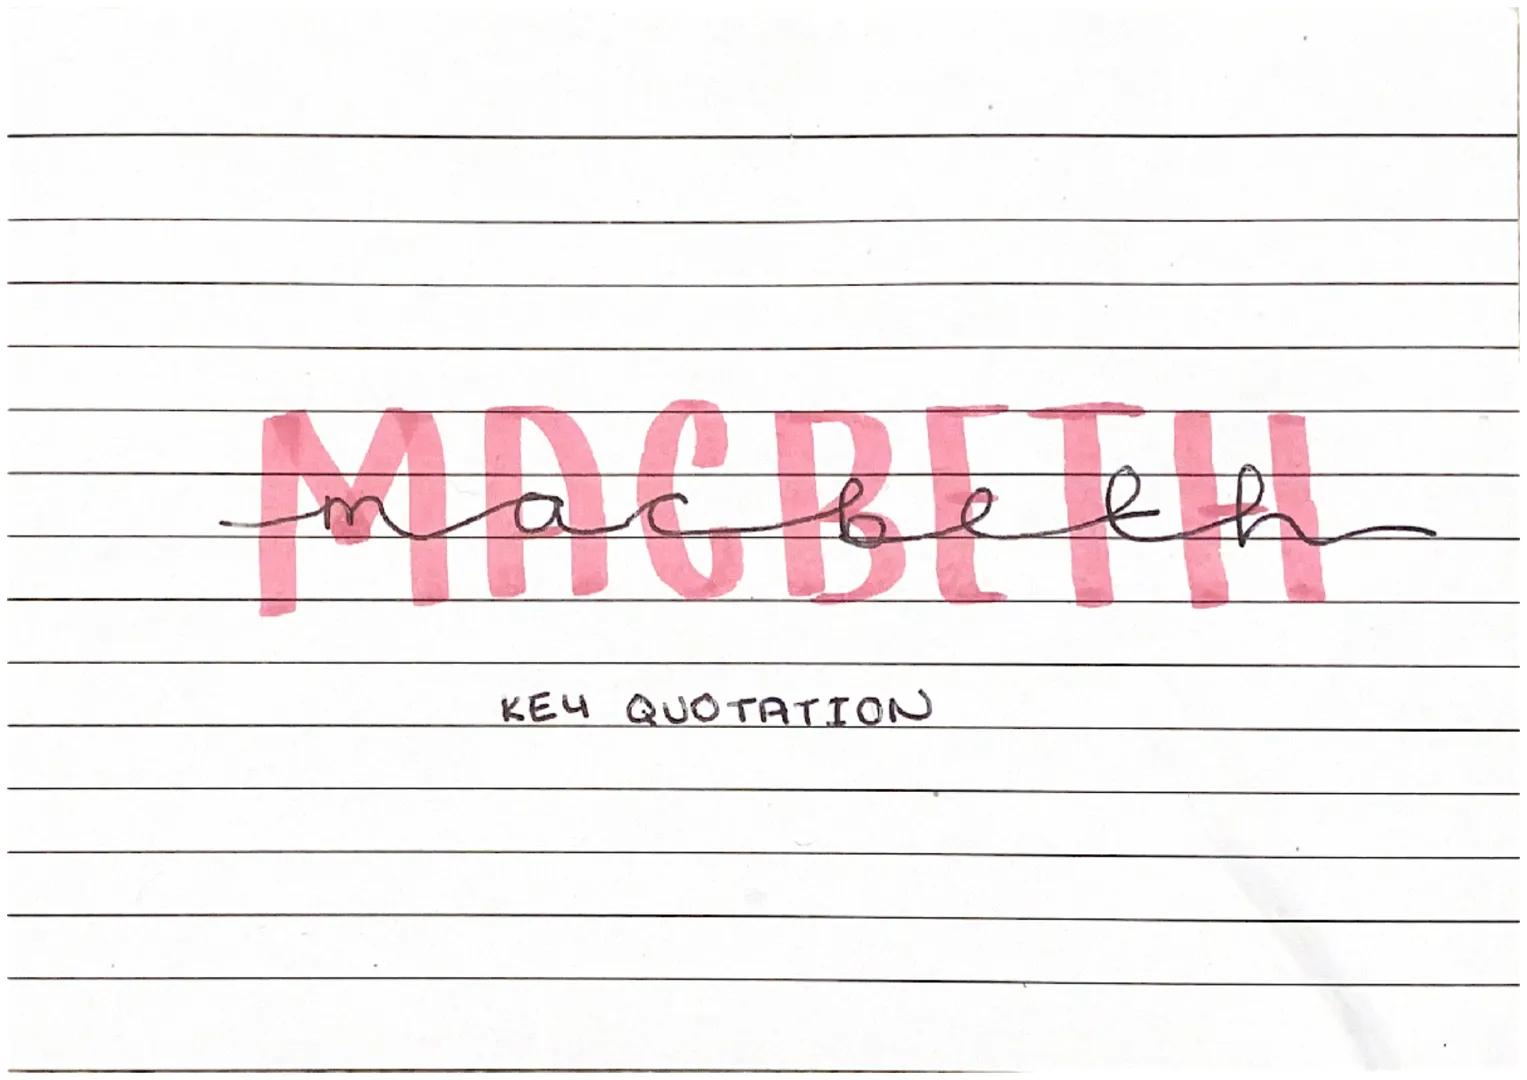 MACBETH
macbeth
KEY QUOTATION